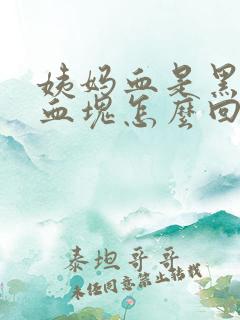 姨妈血是黑
血块怎麽回
泰坦哥哥
未经同意禁止转载